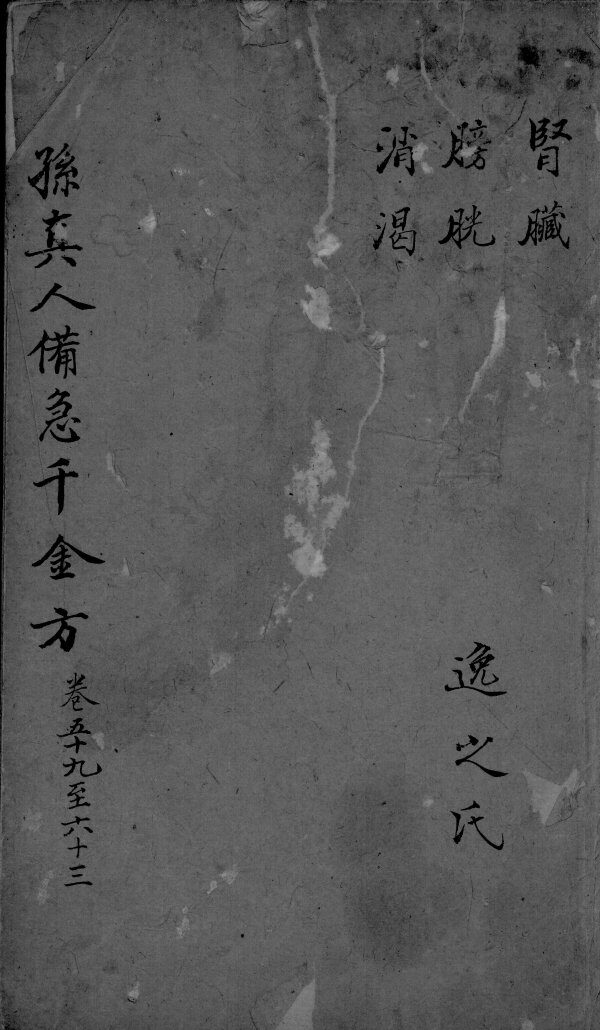 腎臟
膀胱
消渴
逸少氏
孫真人備急千金方
卷五十九至六十三